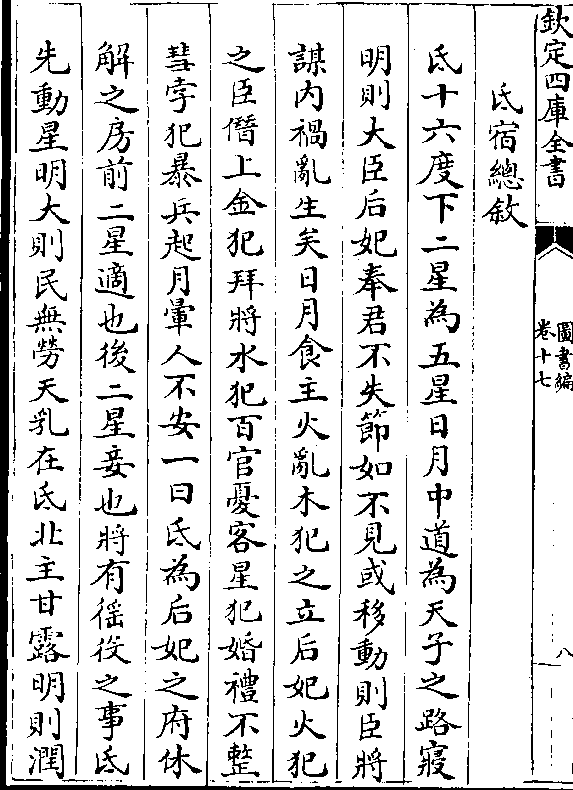 欽定四庫全書
圖書編
卷十七
八
氐宿總敘
氐十六度下二星為五星日月中道為天子之路寢
明則大臣后妃奉君不失節如不見或移動則臣將
謀内禍亂生矣日月食主火亂木犯之立后妃火犯
之臣僭上金犯拜將水犯百官憂客星犯婚禮不整
彗孛犯暴兵起月暈人不安一曰氐為后妃之府休
解之房前二星適也後二星妾也將有徭役之事氐
先動星明大則民無勞天乳在氐北主甘露明則潤